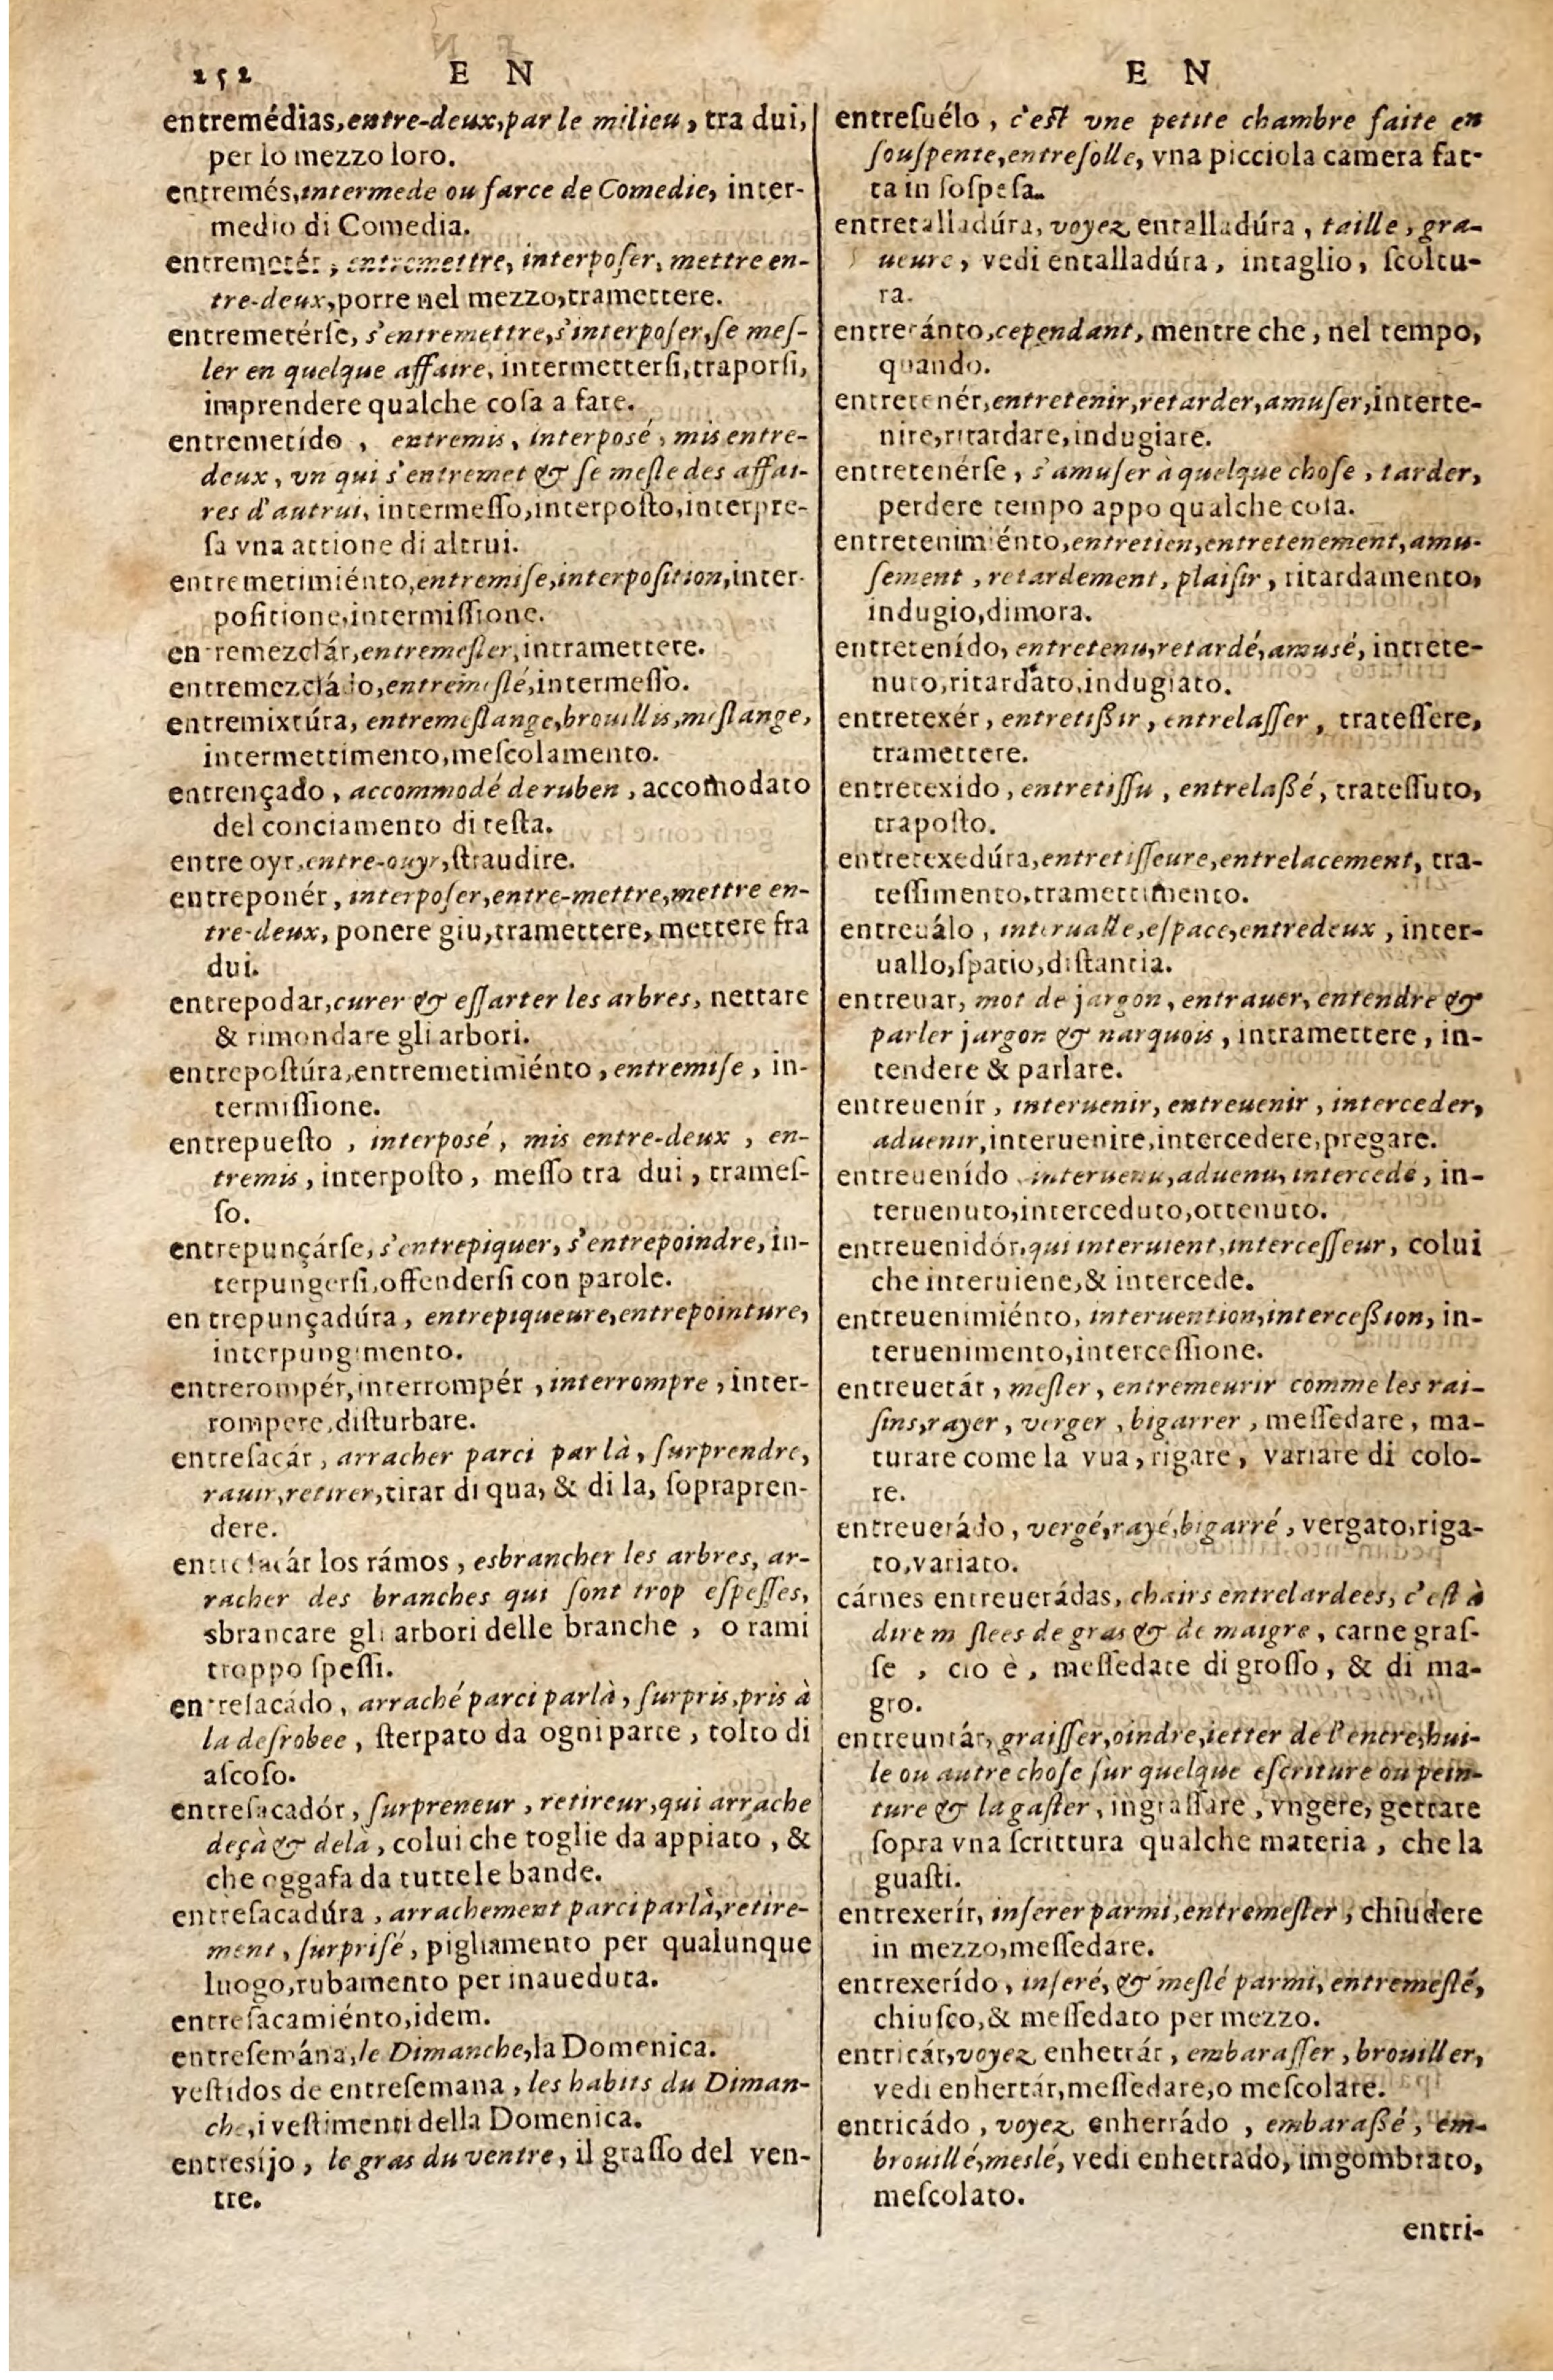 252 E N
entremédias, entre-deux, par le milieu, tra dui,
per lo mezzo loro.
entremés, intermede ou farce de Comedie, inter-
medio di Comedia.
entremetér, entremettre, interposer, mettre en-
tre-deux, porre nel mezzo, tramettere.
entremetérſe, s'entremettre, s'interpoſer, ſe meſ-
ler en quelque affaire, intermetterſi, traporſi,
imprendere qualche coſa a fare.
entremetído, entremis, interposé, mis entre-
deux, vn qui s'entremet & ſe meſle des affai-
res d'autrui, intermeſſo, interpoſto, interpre-
ſa vna attione di altrui.
entremetimiénto, entremiſe, interpoſition, inter-
poſitione, intermiſſione.
entremezclár, entremeſler, intramettere.
entremezcládo, entremeſlé, intermeſſo.
entremixtúra, entremeſlange, brouillis, meſlange,
intermettimento, meſcolamento.
entrençado, accommodé de ruben, accomodato
del conciamento di teſta.
entre oyr, entre-ouyr, ſtraudire.
entreponér, interpoſer, entre-mettre, mettre en-
tre-deux, ponere giu, tramettere, mettere fra
dui.
entrepodar, curer & eſſarter les arbres, nettare
& rimondare gli arbori.
entrepoſtúra, entremetimiénto, entremiſe, in-
termiſſione.
entrepueſto, interposé, mis entre-deux, en-
tremis, interpoſto, meſſo tra dui, trameſ-
ſo.
entrepunçárſe, s'entrepiquer, s'entrepoindre, in-
terpungerſi, offenderſi con parole.
entrepunçadúra, entrepiqueure, entrepointure,
interpungimento.
entrerompér, interrompér, interrompre, inter-
rompere, diſturbare.
entreſacár, arracher parci par là, ſurprendre,
rauir, retirer, tirar di qua, & di la, ſoprapren-
dere.
entreſacár los rámos, esbrancher les arbres, ar-
racher des branches qui ſont trop eſpeſſes,
sbrancare gli arbori delle branche, o rami
troppo ſpeſſi.
entreſacádo, arraché parci parlà, ſurpris, pris à
la deſrobee, ſterpato da ogni parte, tolto di
aſcoſo.
entreſacadór, ſurpreneur, retireur, qui arrache
deçà & delà, colui che toglie da appiato, &
che oggafa da tutte le bande.
entreſacadúra, arrachement parci parlà, retire-
ment, ſurprisé, pigliamento per qualunque
luogo, rubamento per inaueduta.
entreſacamiénto, idem.
entreſemána, le Dimanche, la Domenica.
veſtidos de entreſemana, les habits du Diman-
che, i veſtimenti della Domenica.
entresijo, le gras du ventre, il graſſo del ven-
tre.
E N
entreſuélo, c'eſt vne petite chambre faite en
ſouſpente, entreſolle, vna picciola camera fat-
ta in ſoſpeſa.
entretalladúra, voyez entalladúra, taille, gra-
ueure, vedi entalladúra, intaglio, ſcoltu-
ra.
entretánto, cependant, mentre che, nel tempo,
quando.
entretenér, entretenir, retarder, amuſer, interte-
nire, ritardare, indugiare.
entretenérſe, s'amuſer à quelque choſe, tarder,
perdere tempo appo qualche coſa.
entretenimiénto, entretien, entretenement, amu-
ſement, retardement, plaiſir, ritardamento,
indugio, dimora.
entretenído, entretenu, retardé, amusé, intrete-
nuto, ritardato, indugiato.
entretexér, entretißir, entrelaſſer, trateſſere,
tramettere.
entretexido, entretiſſu, entrelaßé, trateſſuto,
trapoſto.
entretexedúra, entretiſſeure, entrelacement, tra-
teſſimento, tramettimento.
entreuálo, interualle, eſpace, entredeux, inter-
uallo, ſpatio, diſtantia.
entreuar, mot de jargon, entrauer, entendre &
parler jargon & narquois, intramettere, in-
tendere & parlare.
entreuenír, interuenir, entreuenir, interceder,
aduenir, interuenire, intercedere, pregare.
entreuenído, interuenu, aduenu, intercedé, in-
teruenuto, interceduto, ottenuto.
entreuenidór, qui interuient, interceſſeur, colui
che interuiene, & intercede.
entreuenimiénto, interuention, interceßion, in-
teruenimento, interceſſione.
entreuerár, meſler, entremeurir comme les rai-
ſins, rayer, verger, bigarrer, meſſedare, ma-
turare come la vua, rigare, variare di colo-
re.
entreuerádo, vergé, rayé, bigarré, vergato, riga-
to, variato.
cárnes entreuerádas, chairs entrelardees, c'eſt à
dire meſlees de gras & de maigre, carne graſ-
ſe, cio è, meſſedate di groſſo, & di ma-
gro.
entreuntár, graiſſer, oindre, ietter de l'encre, hui-
le ou autre choſe ſur quelque eſcriture ou pein-
ture & la gaſter, ingraſſare, vngere, gettare
ſopra vna ſcrittura qualche materia, che la
guaſti.
entrexerír, inſerer parmi, entremeſler, chiudere
in mezzo, meſſedare.
entrexerído, inſeré, & meſlé parmi, entremeſlé,
chiuſco, & meſſedato per mezzo.
entricár, voyez enhetrár, embaraſſer, brouiller,
vedi enhertár, meſſedare, o meſcolare.
entricádo, voyez enherrádo, embaraßé, em-
brouillé, meslé, vedi enhetrado, imgombrato,
meſcolato.
entri-